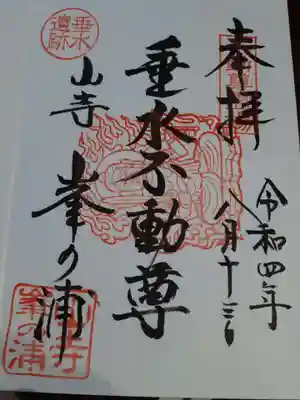 奉拝
令和四年
八月十三日
垂水不動尊
垂水
遺跡
山寺
峯の浦
山寺
峯の浦